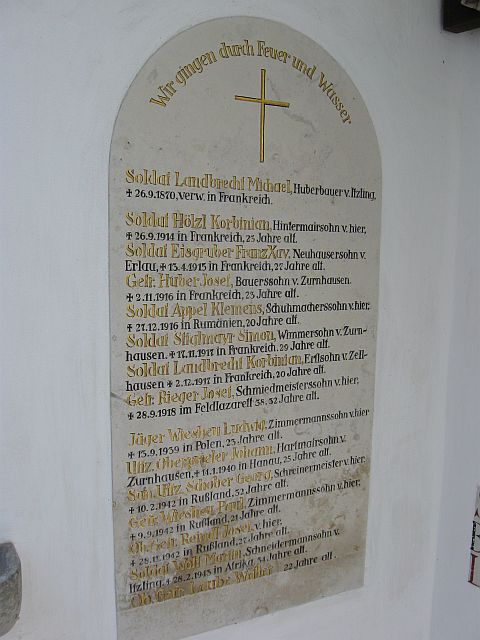 Wir gingen durch Feuer und Wasser
Soldat Landbrecht Michael, Huberbauer v. Itzling,
✝ 26.9.1870, verw. in Frankreich.
Soldat Hölzl Korbinian, Hintermairsohn v. hier,
✝ 26.9.1914 in Frankreich, 23 Jahre alt.
Soldat Eisgruber Franz Xav. Neuhausersohn v.
Erlau, ✝ 13.4.1915 in Frankreich, 27 Jahre alt.
Gefr. Huber Josef, Bauerssohn v. Zurnhausen.
✝ 2.11.1916 in Frankreich, 23 Jahre alt.
Soldat Appel Klemens, Schuhmacherssohn v. hier,
✝ 21.12.1916 in Rumänien, 20 Jahre alt.
Soldat Stralmayr Simon, Wimmersohn v. Zurn-
hausen. ✝ 17.11.1917 in Frankreich. 29 Jahre alt.
Soldat Landbrecht Korbinian, Ertlsohn v. Zell-
hausen ✝ 2.12.1917 in Frankreich, 20 Jahre alt.
Gefr. Rieger Josef, Schmiedmeisterssohn v. hier,
✝ 28.9.1918 im Feldlazarett 58, 32 Jahre alt.
Jäger Wiesheu Ludwig, Zimmermannssohn v. hier
✝ 15.9.1939 in Polen, 23 Jahre alt.
Uffz. Oberprieler Johann, Hartmairsohn v.
Zurnhausen, ✝ 14.1.1940 in Hanau, 25 Jahre alt.
San. Uffz. Schober Georg, Schreinermeister v. hier,
✝ 10.2.1942 in Rußland, 32 Jahre alt.
Gefr. Wiesheu Paul, Zimmermannssohn v. hier,
✝ 9.9.1942 in Rußland, 21 Jahre alt.
Ob. Gefr. Josef v. hier,
✝ 28.11.1942 in Rußland, 27 Jahre alt.
Soldat Wolf Martin, Schneidermannsohn v.
Itzling, ✝ 28.2.1943 in Afrika, 34 Jahre alt.
Ob. Gefr. 22 Jahre alt.